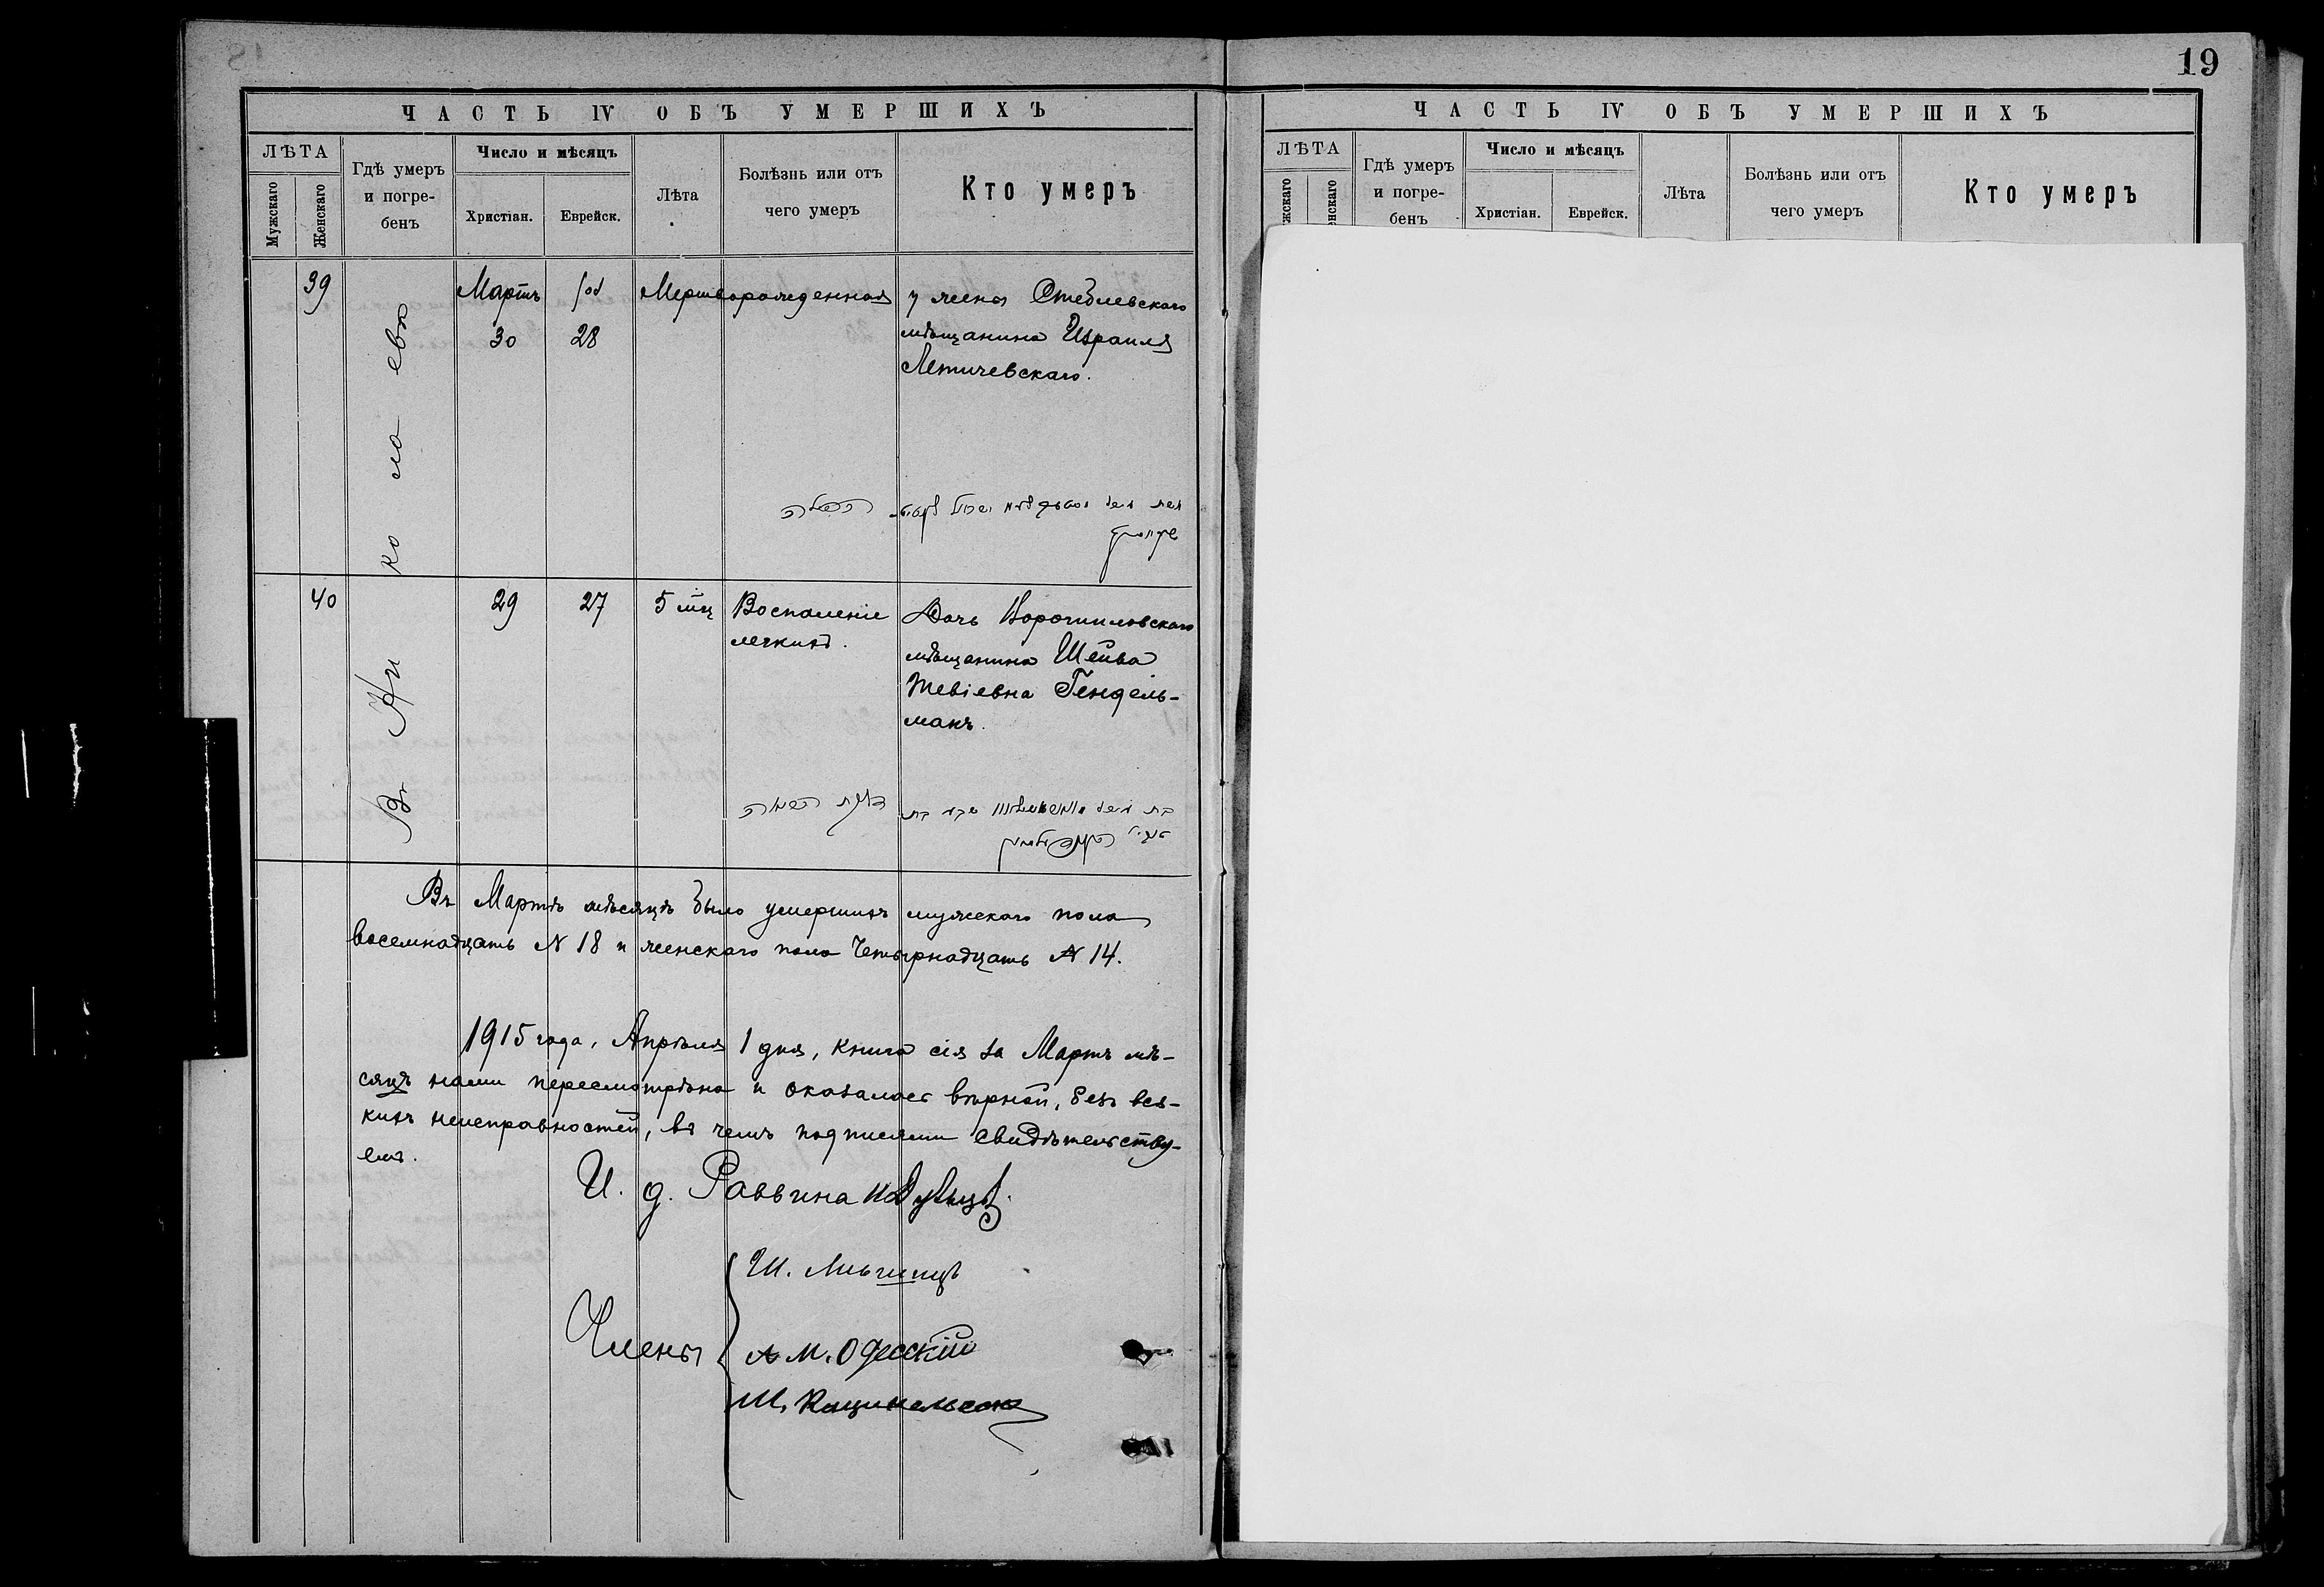 19
ЧАСТЬ IV ОБЪ УМЕРШИХЪ
ЛѢТА
Мужскаго
Женскаго
Гдѣ умеръ и погре-бенъ
Число и мѣсяцъ
Христіан.
Еврейск.
Лѣта
Болѣзнь или отъ чего умеръ
Кто умеръ
39
Мартъ
30
28
Мертворожденная
у жены Стеблевскаго
мѣщанина Израиля
Летичевскаго.
Въ Николаевѣ
40
29
27
5 мц
Воспаленіе
легкихъ.
Дочь Ворошиловскаго
мѣщанина Шейва
Тевіевна Гендель-
манъ.
Въ Мартѣ мѣсяцѣ было умершихъ мужскаго пола
восемнадцать N 18 и женскаго пола Четырнадцать N 14.
1915 года, Апрѣля 1 дня, книга сія за Мартъ мѣ-
сяцъ нами пересмотрѣна и оказалась вѣрной, безъ вся-
кихъ неисправностей, въ чемъ подписями свидѣтельству-
емъ.
И. д. Раввина
Члены
Ш.
А М. Одесскій
Ш. Кацнельсон
ЧАСТЬ IV ОБЪ УМЕРШИХЪ
ЛѢТА
жскаго
нскаго
Гдѣ умеръ и погре-бенъ
Число и мѣсяцъ
Христіан.
Еврейск.
Лѣта
Болѣзнь или отъ чего умеръ
Кто умеръ